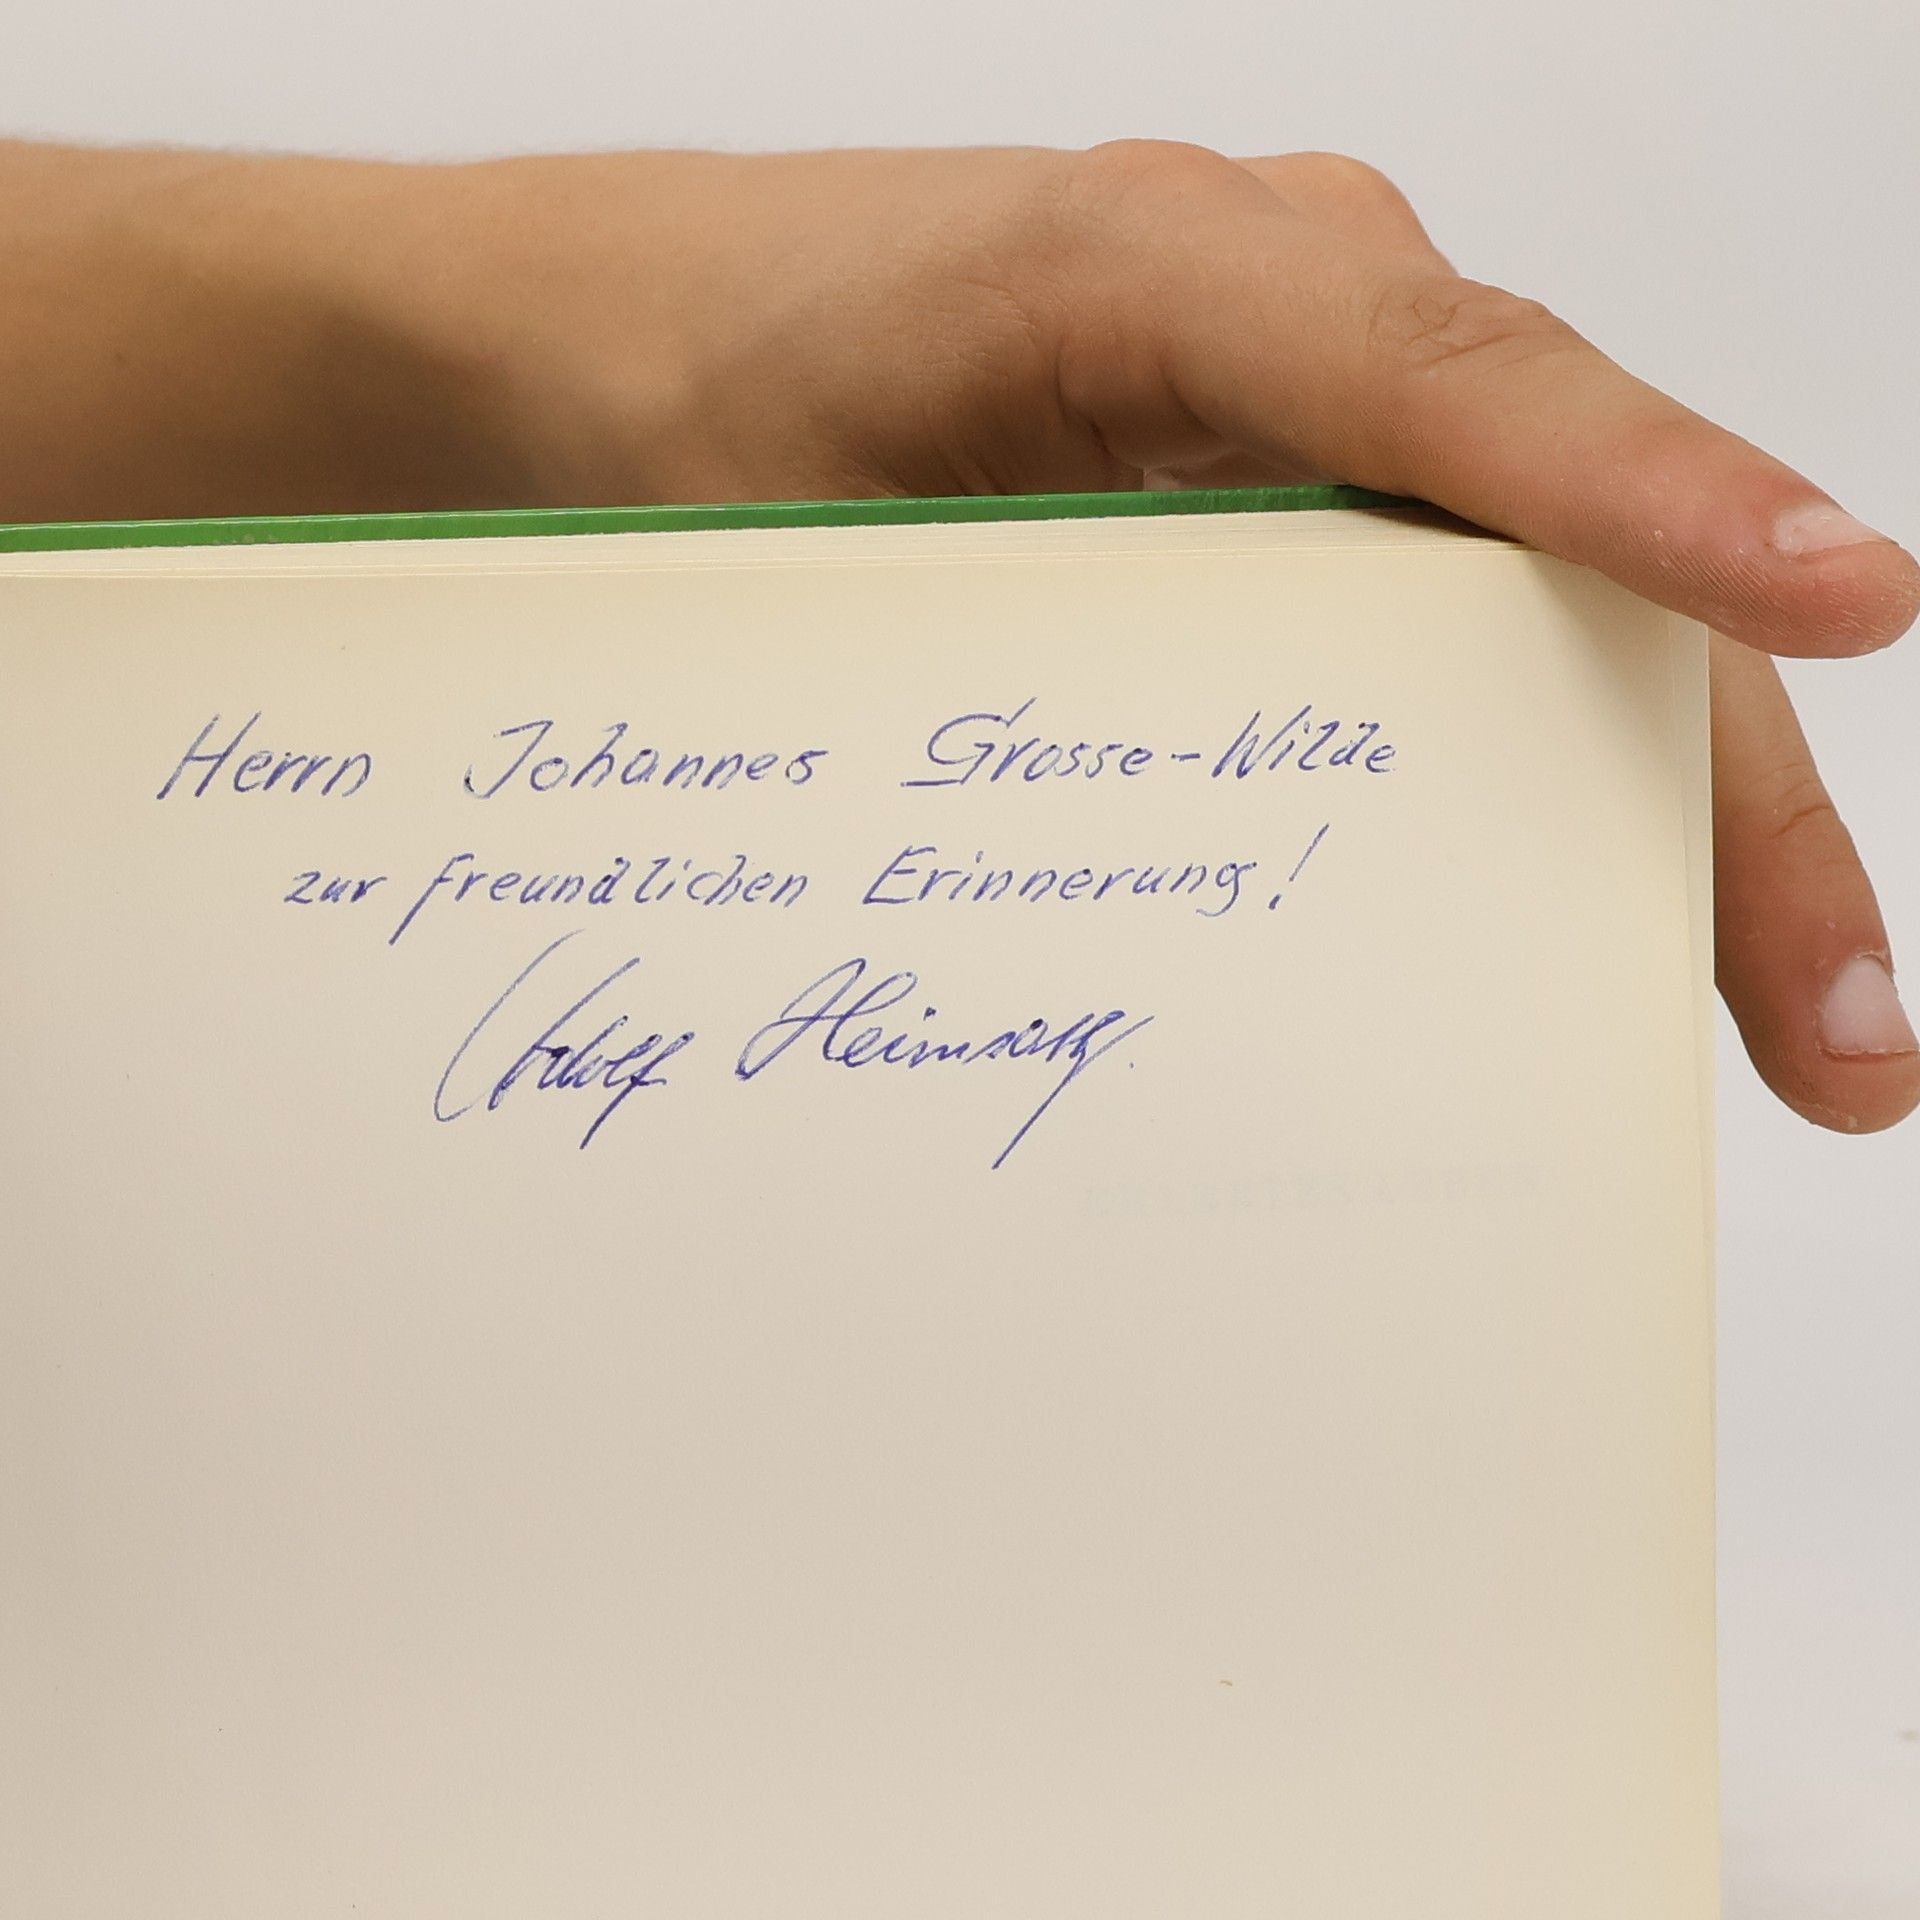 Herrn Johannes Grosse-Wilde
zur freundlichen Erinnerung!
Adolf Heimsath.